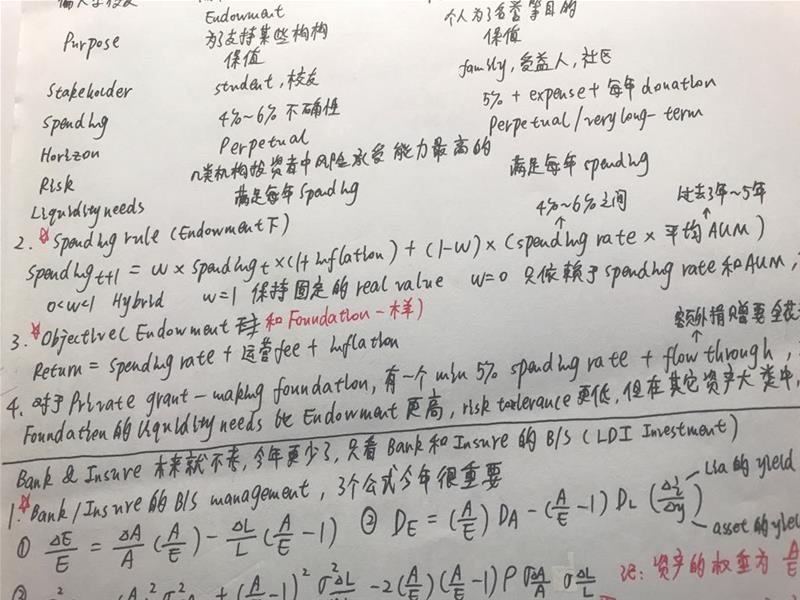 Endowment 个人为了名誉等目的
Purpose 为了支持某些机构 保值
保值 family, 受益人, 社区
Stakeholder student, 校友 5% + expense + 每年 donation
Spending 4%~6% 不确定性 Perpetual / very long-term
Horizon Perpetual
Risk 几类机构投资者中风险承受能力最高的
Liquidity needs 满足每年 Spending 满足每年 spending
4%~6%之间 过去3年~5年
2. Spending rule (Endowment下)
Spending t+1 = w × Spending t × (1+ inflation) + (1-w) × (spending rate × 平均 AUM)
0<w<1 Hybrid w=1 保持固定的 real value w=0 只依赖于 spending rate 和 AUM,
3. Objective ( Endowment 和 Foundation 一样)
Return = Spending rate + 运营 fee + inflation 额外捐赠要全花
4. 对于 Private grant-making foundation, 有一个 min 5% spending rate + flow through,
Foundation 的 liquidity needs 比 Endowment 更高, risk tolerance 更低, 但在其它资产大类中,
Bank & Insure 本来就不考, 今年更少了, 只看 Bank 和 Insure 的 B/S (LDI Investment)
1. Bank / Insure 的 B/S management, 3个公式今年很重要 Lia 的 yield
① ΔE/E = ΔA/A (A/E) - ΔL/L (A/E - 1) ② D_E = (A/E) D_A - (A/E - 1) D_L (Δi/Δy)
asset 的 yield
(A/E)² σ²ΔA/A + (A/E - 1)² σ²ΔL/L - 2(A/E)(A/E - 1) ρ σΔA/A σΔL/L 记: 资产的权重为 A/E